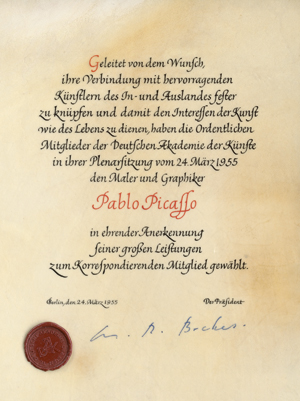 Geleitet von dem Wunſch,
ihre Verbindung mit hervorragenden
Künſtlern des In- und Auslandes feſter
zu knüpfen und damit den Intereſſen der Kunſt
wie des Lebens zu dienen, haben die Ordentlichen
Mitglieder der Deutſchen Akademie der Künſte
in ihrer Plenarſitzung vom 24. März 1955
den Maler und Graphiker
Pablo Picaſſo
in ehrender Anerkennung
ſeiner großen Leiſtungen
zum Korreſpondierenden Mitglied gewählt.
Berlin, den 24. März 1955
Der Präſident